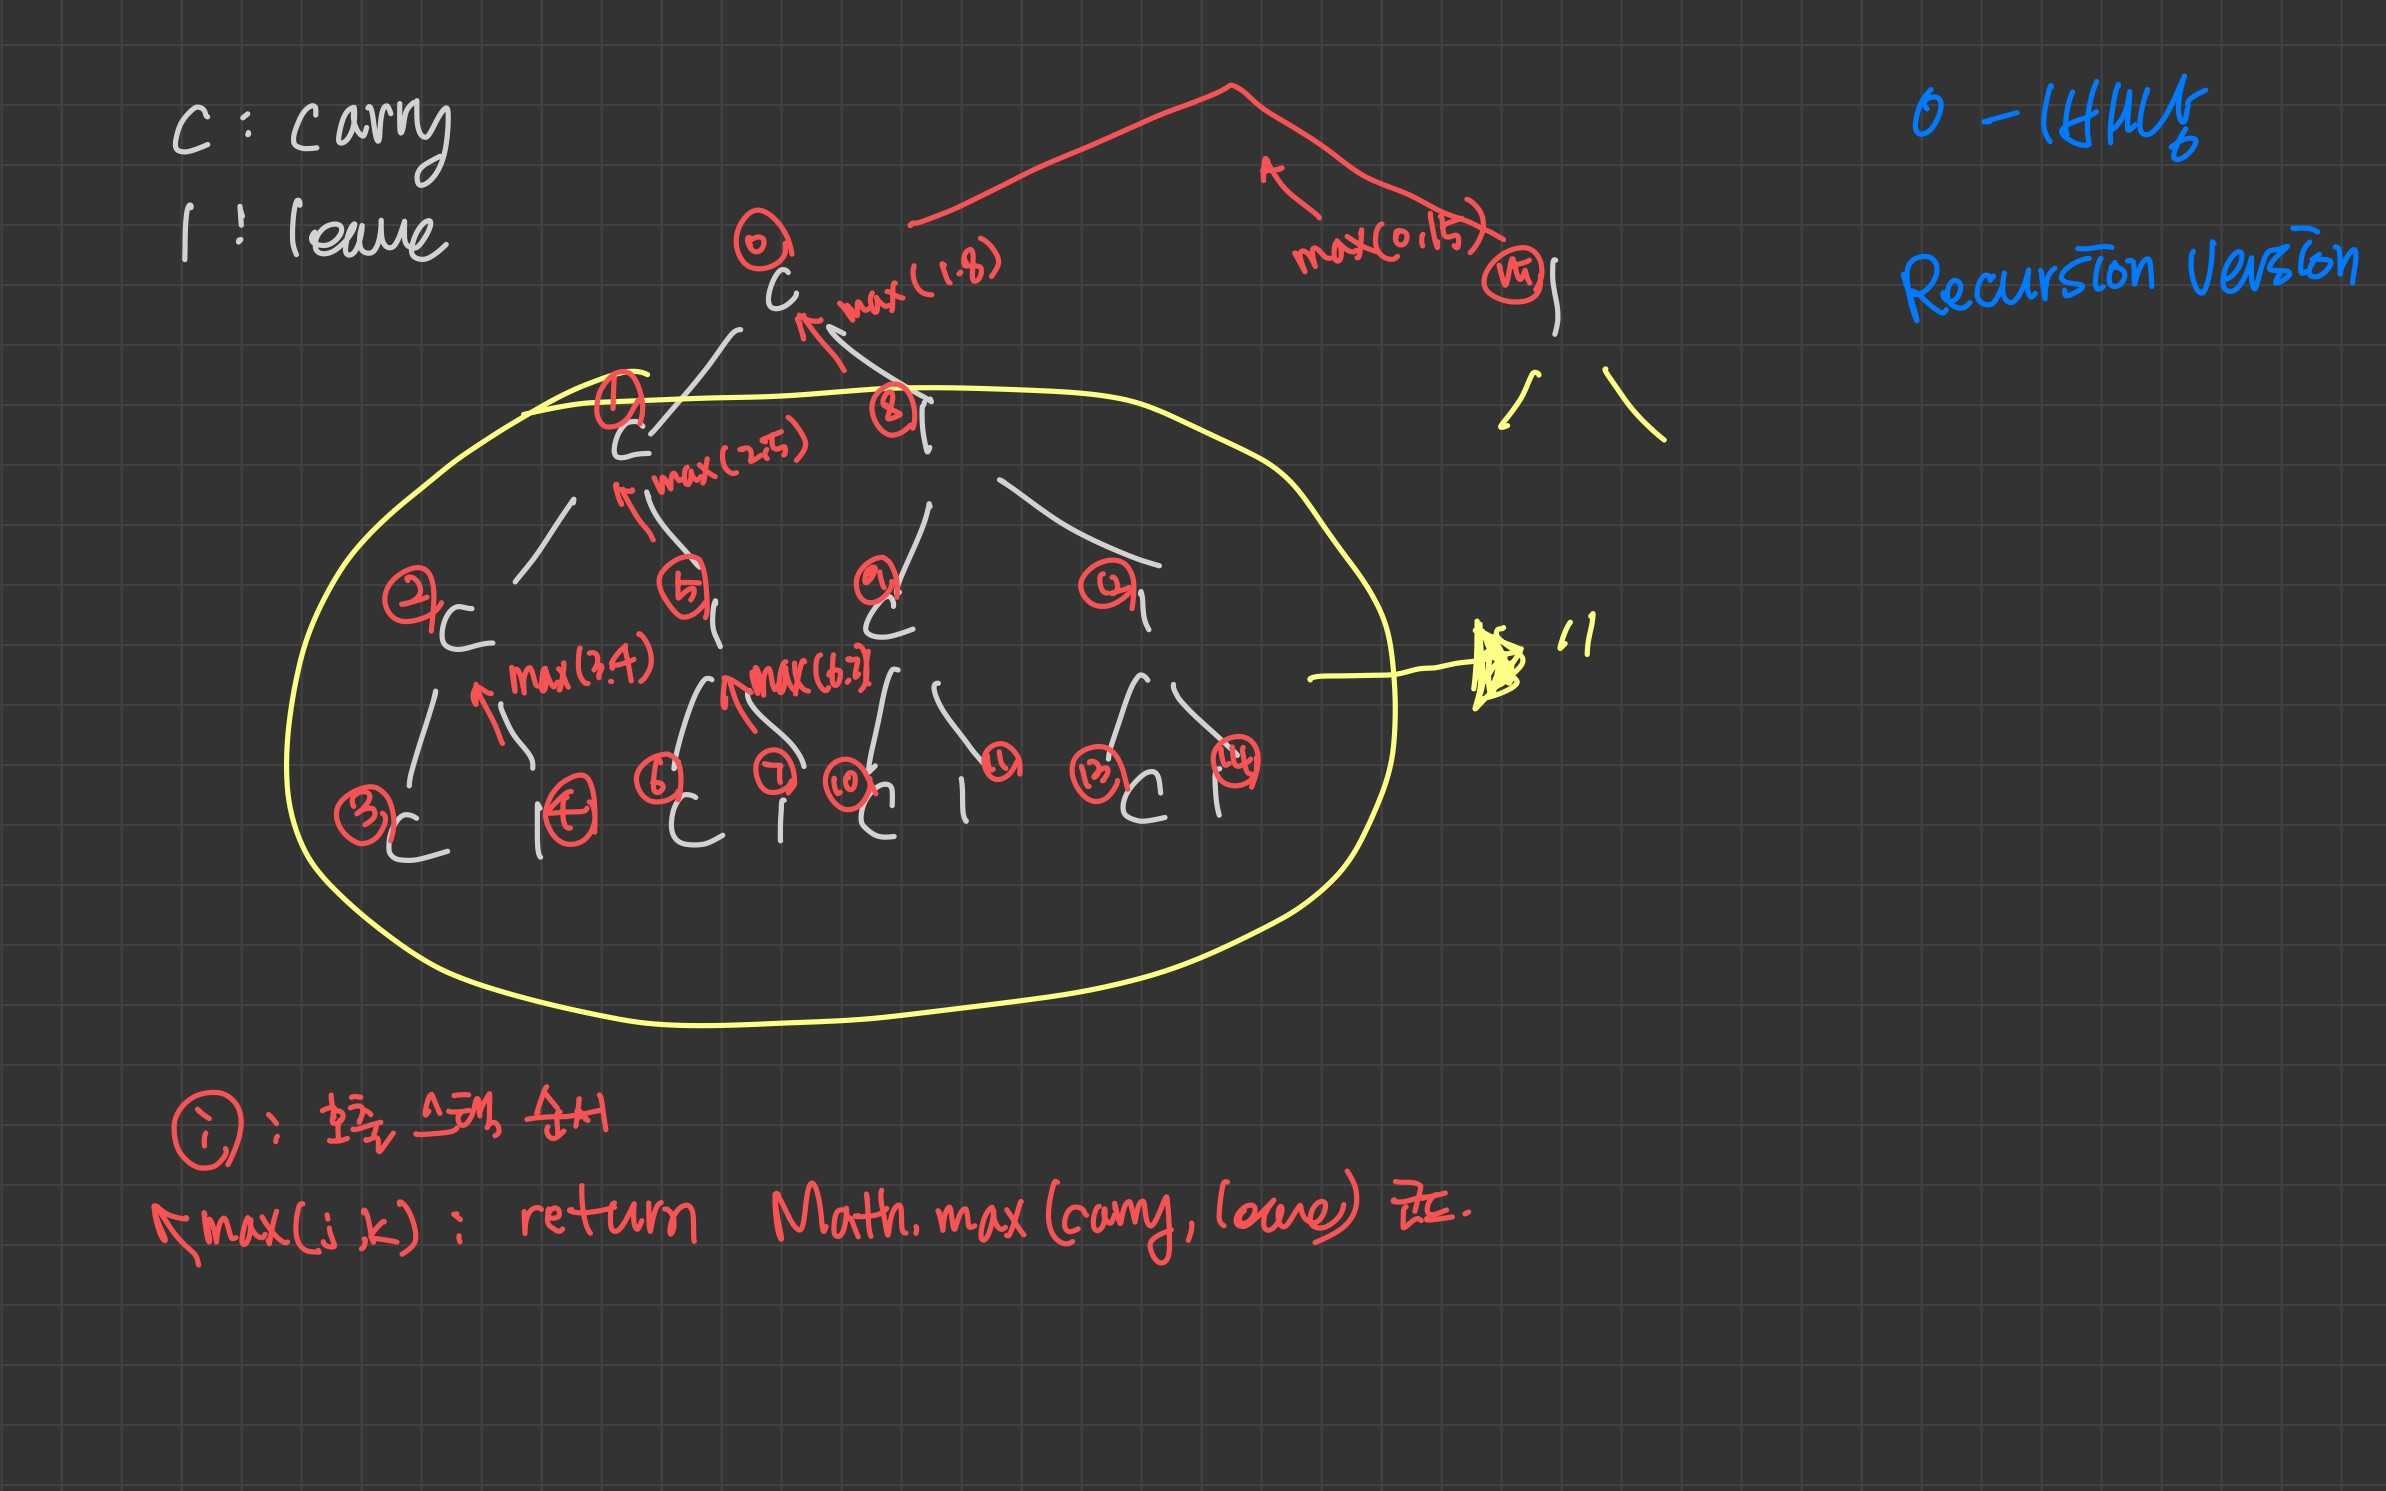 C : Carry
l : leave
0 - 1 배낭
Recursion Version
⓪
C
max(1.8)
max(0.15)
⑮ l
①
C
⑧ l
max(2.5)
② C
⑤ l
⑨ C
⑫ l
max(3.4)
max(6.7)
〃
③ C
l ④
⑥ C
⑦ l
⑩ C
⑪ l
⑬ C
⑭ l
ⓘ : 노드 순서
max(j,k) : return Math.max(carry, leave) 코드.